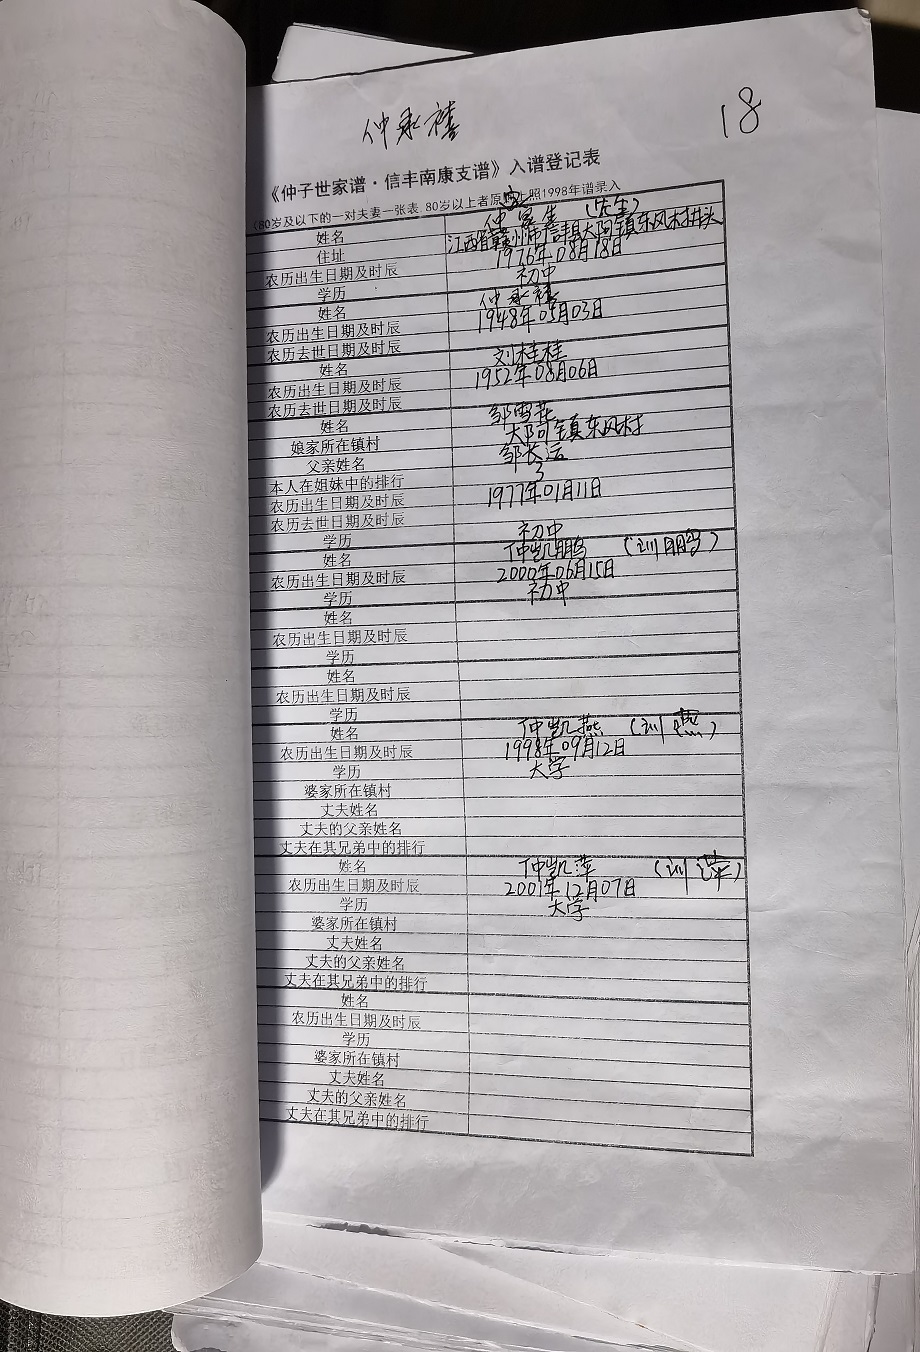 仲承禧
18
《仲子世家谱·信丰南康支谱》入谱登记表
(80岁及以下的一对夫妻一张表.80岁以上者原则上照1998年谱录入
姓名 仲家生 (先生)
住址 江西省赣州市信丰县大阿镇东风村井头
农历出生日期及时辰 1976年08月18日
学历 初中
姓名 仲承禧
农历出生日期及时辰 1948年05月03日
农历去世日期及时辰
姓名 刘桂桂
农历出生日期及时辰 1952年08月06日
农历去世日期及时辰
姓名 邹雪花
娘家所在镇村 大阿镇东风村
父亲姓名 邹长运
本人在姐妹中的排行 3
农历出生日期及时辰 1977年01月11日
农历去世日期及时辰
学历 初中
姓名 仲凯鹏 (训鹏)
农历出生日期及时辰 2000年06月15日
学历 初中
姓名
农历出生日期及时辰
学历
姓名
农历出生日期及时辰
学历
姓名 仲凯燕 (训燕)
农历出生日期及时辰 1998年09月12日
学历 大学
婆家所在镇村
丈夫姓名
丈夫的父亲姓名
丈夫在其兄弟中的排行
姓名 仲凯萍 (训萍)
农历出生日期及时辰 2001年12月07日
学历 大学
婆家所在镇村
丈夫姓名
丈夫的父亲姓名
丈夫在其兄弟中的排行
姓名
农历出生日期及时辰
学历
婆家所在镇村
丈夫姓名
丈夫的父亲姓名
丈夫在其兄弟中的排行